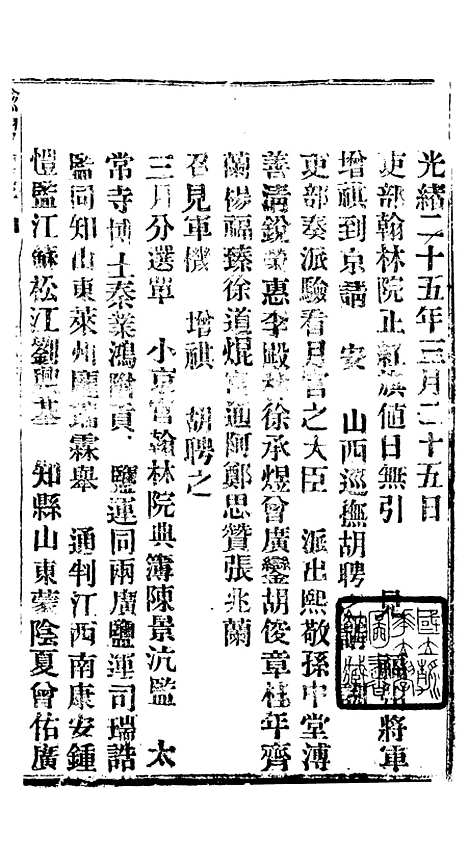 光緒二十五年三月二十五日
吏部翰林院正紅旗值日無引 見 將軍
增祺到京請 安 山西巡撫胡聘之
吏部奏派驗看月官之大臣 派出熙敬孫中堂溥
善清銳 惠李殿 徐承煜曾廣鑾胡俊章桂年齊
蘭楊福臻徐道焜 通阿鄭思贊張兆蘭
召見軍機 增祺 胡聘之
三月分選單 小京官翰林院典簿陳景沆監 太
常寺博士秦業鴻附貢 鹽運同兩廣鹽運司瑞誥
監同知山東萊州龐瑞霖舉 通判江西南康安鍾
愷監江蘇松江劉 基 知縣山東蒙陰夏曾佑廣